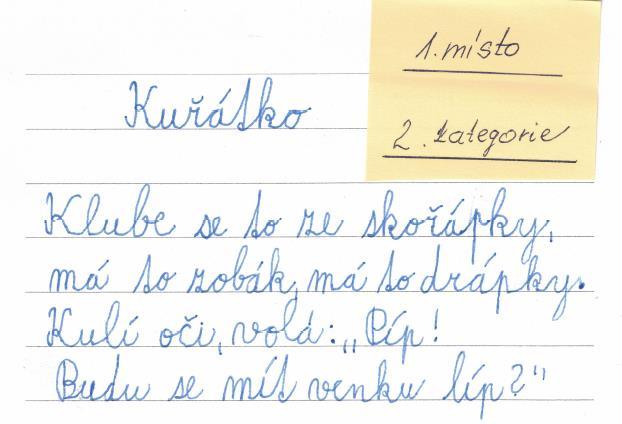 1. místo
2. kategorie
Kuřátko
Klube se to ze skořápky,
má to zobák, má to drápky.
Kulí oči, volá: „Píp!
Budu se mít venku líp?"